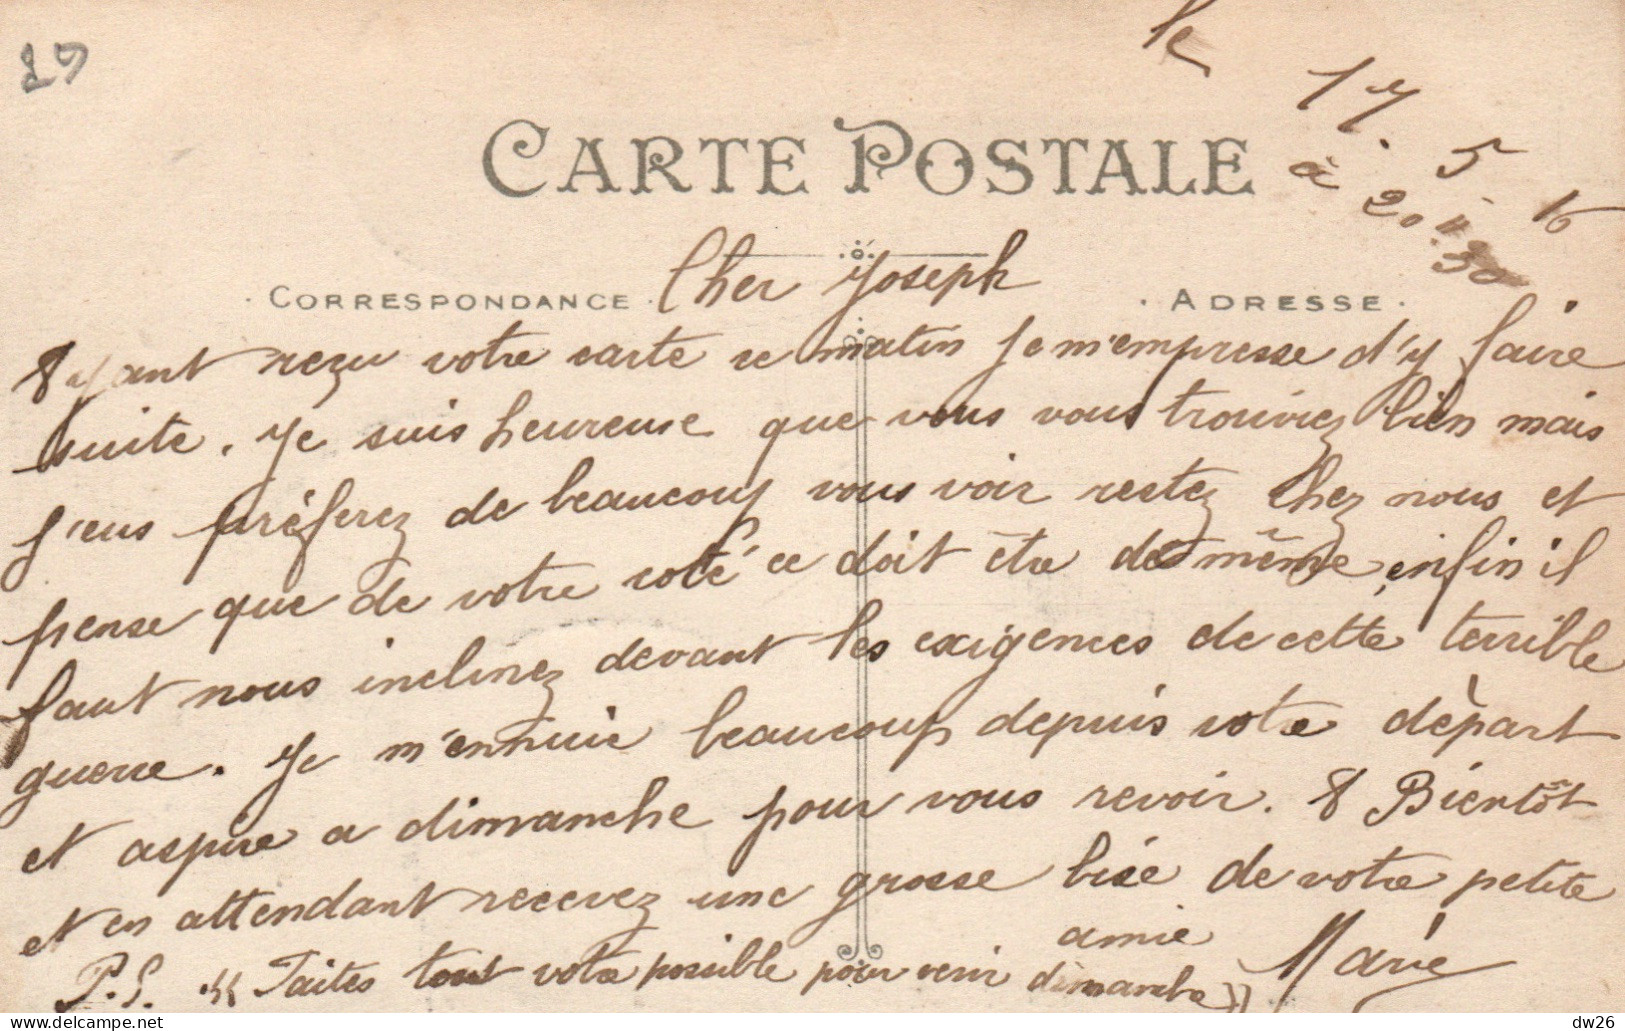 29
le 17. 5. 16
à 20 H. 30
CARTE POSTALE
CORRESPONDANCE
ADRESSE
Cher Joseph
Ayant reçu votre carte ce matin Je m'empresse d'y faire
suite. Je suis heureuse que vous vous trouviez bien mais
j'eus préferez de beaucoup vous voir restez chez nous et
pense que de votre coté ce doit être de même, enfin il
faut nous inclinez devant les exigences de cette terrible
guerre. Je m'ennuie beaucoup depuis votre dèpart
et aspire a dimanche pour vous revoir. A Bientôt
et en attendant recevez une grosse bise de votre petite
amie Marie
P.S. "Faites tout votre possible pour venir dimanche"
dw26